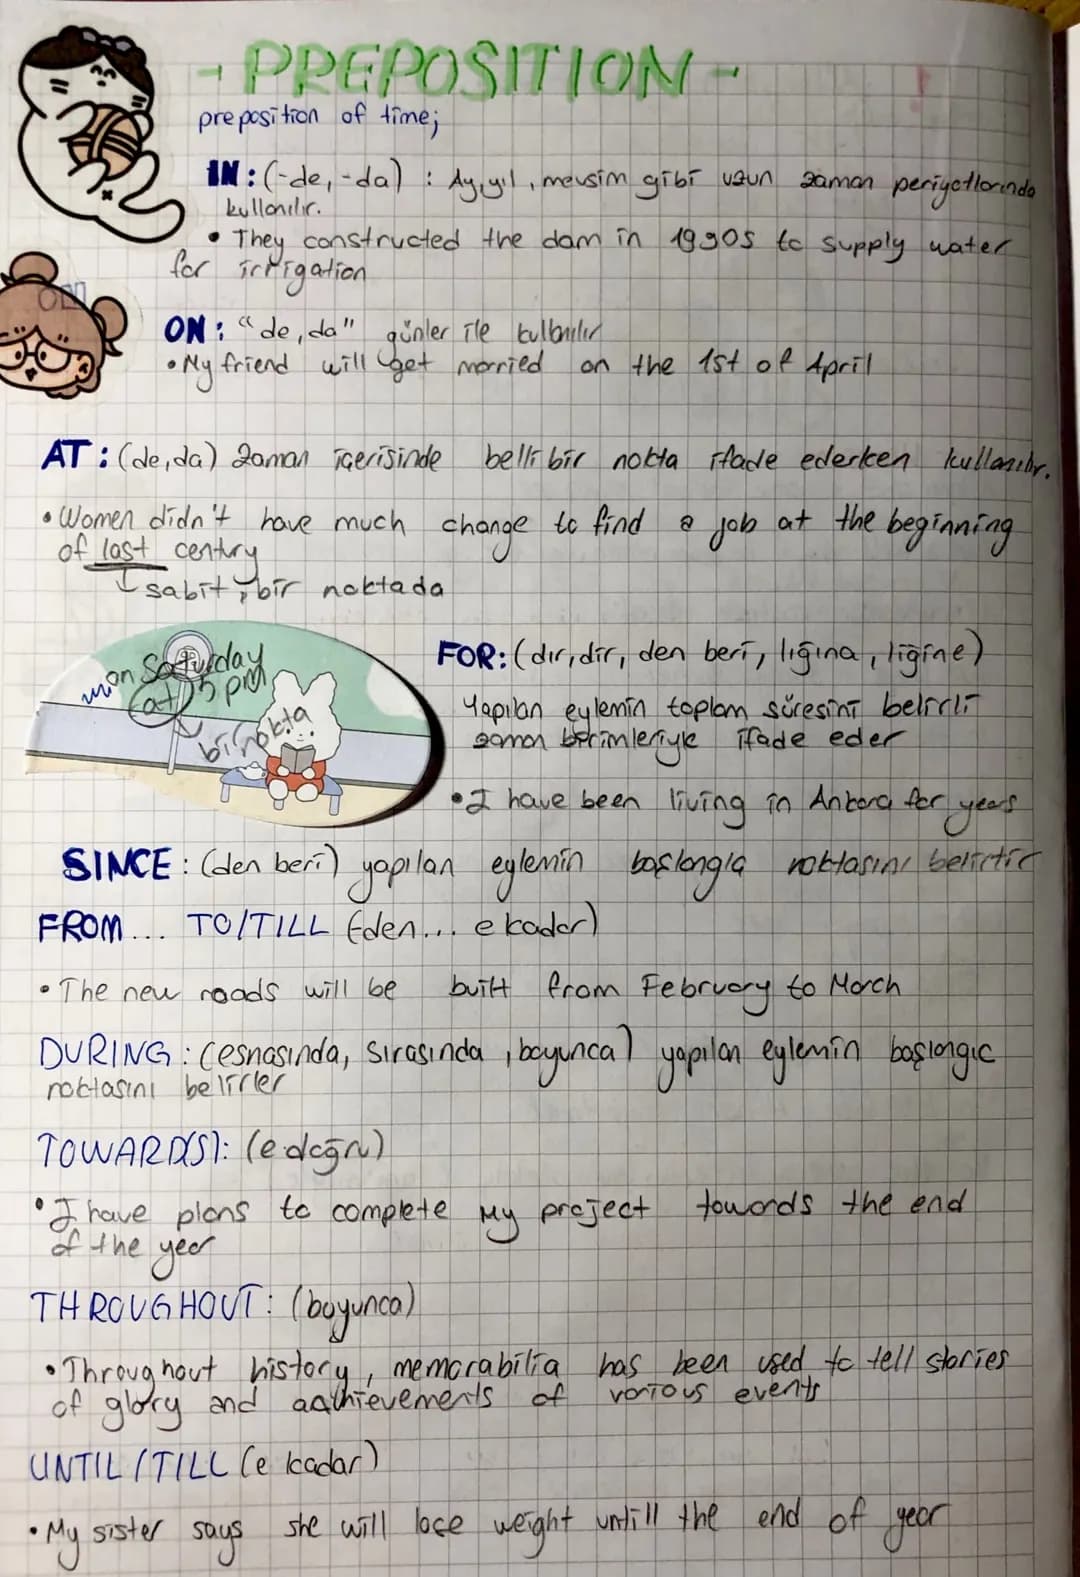 - PREPOSITION -
preposition of time;
IN : (-de, -da) : Ay, yıl, mevsim gibi uzun zaman periyotlarında
kullanılır.
• They constructed the dam in 1990s to supply water
for irrigation
ON : "de, da" günler ile kullanılır
• My friend will get married on the 1st of April
AT : (de, da) zaman içerisinde belli bir nokta ifade ederken kullanılır.
• Women didn't have much change to find a job at the beginning
of last century
sabit, bir noktada
on Saturday
at 5 pm
bir nokta
FOR: (dır, dir, den beri, lığına, liğine)
Yapılan eylemin toplam süresini belirli
zaman birimleriyle ifade eder
• I have been living in Ankara for years
SINCE : (den beri) yapılan eylemin başlangıç noktasını belirtir
FROM... TO/TILL (-den... e kadar)
• The new roads will be built from February to March
DURING : (esnasında, sırasında, boyunca) yapılan eylemin başlangıc
noktasını belirler
TOWARD(S): (e doğru)
• I have plans to complete my project towards the end
of the year
THROUGHOUT: (boyunca)
• Throughout history, memorabilia has been used to tell stories
of glory and aathievements of various events
UNTIL / TILL (e kadar)
• My sister says she will lose weight untill the end of year